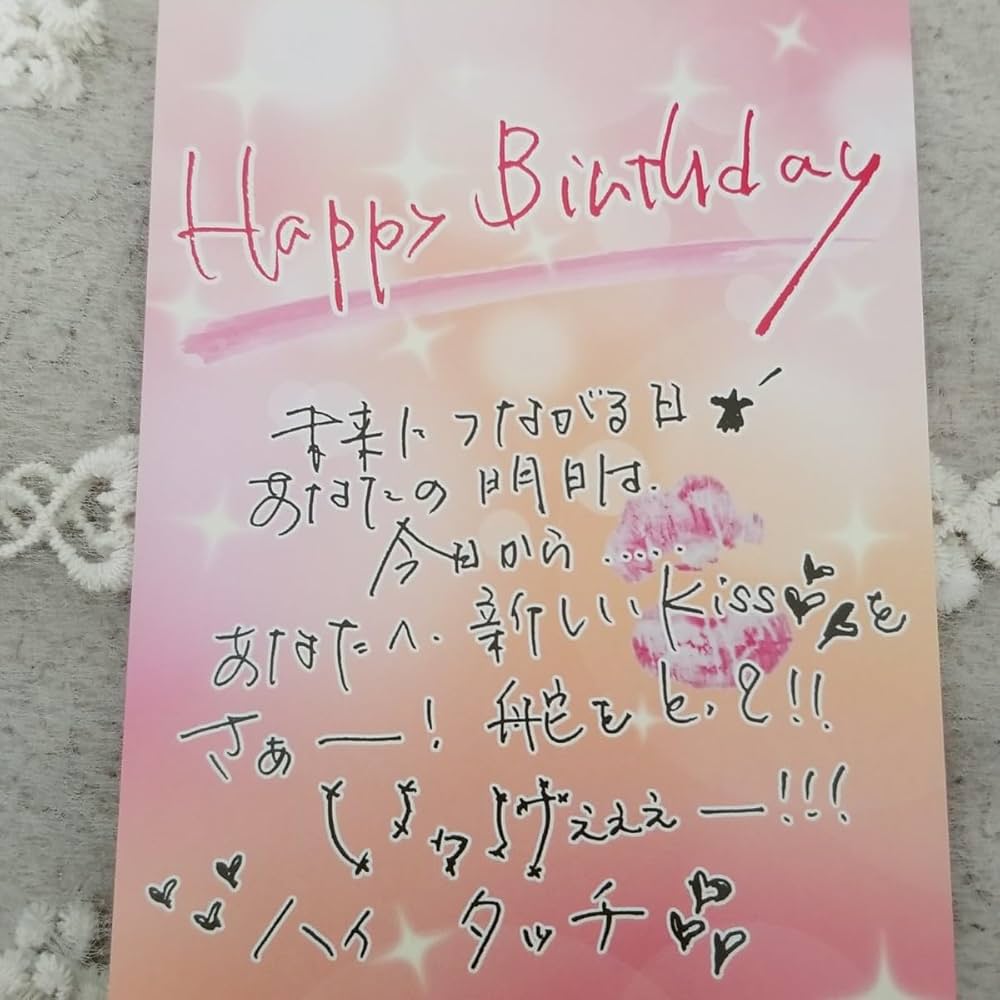 Happy Birthday
未来につながる日
あなたの明日は、
今日から.....
あなたへ、新しいKissを
さぁー!舵をとれ!!
しゅっぱつ
ハイタッチ